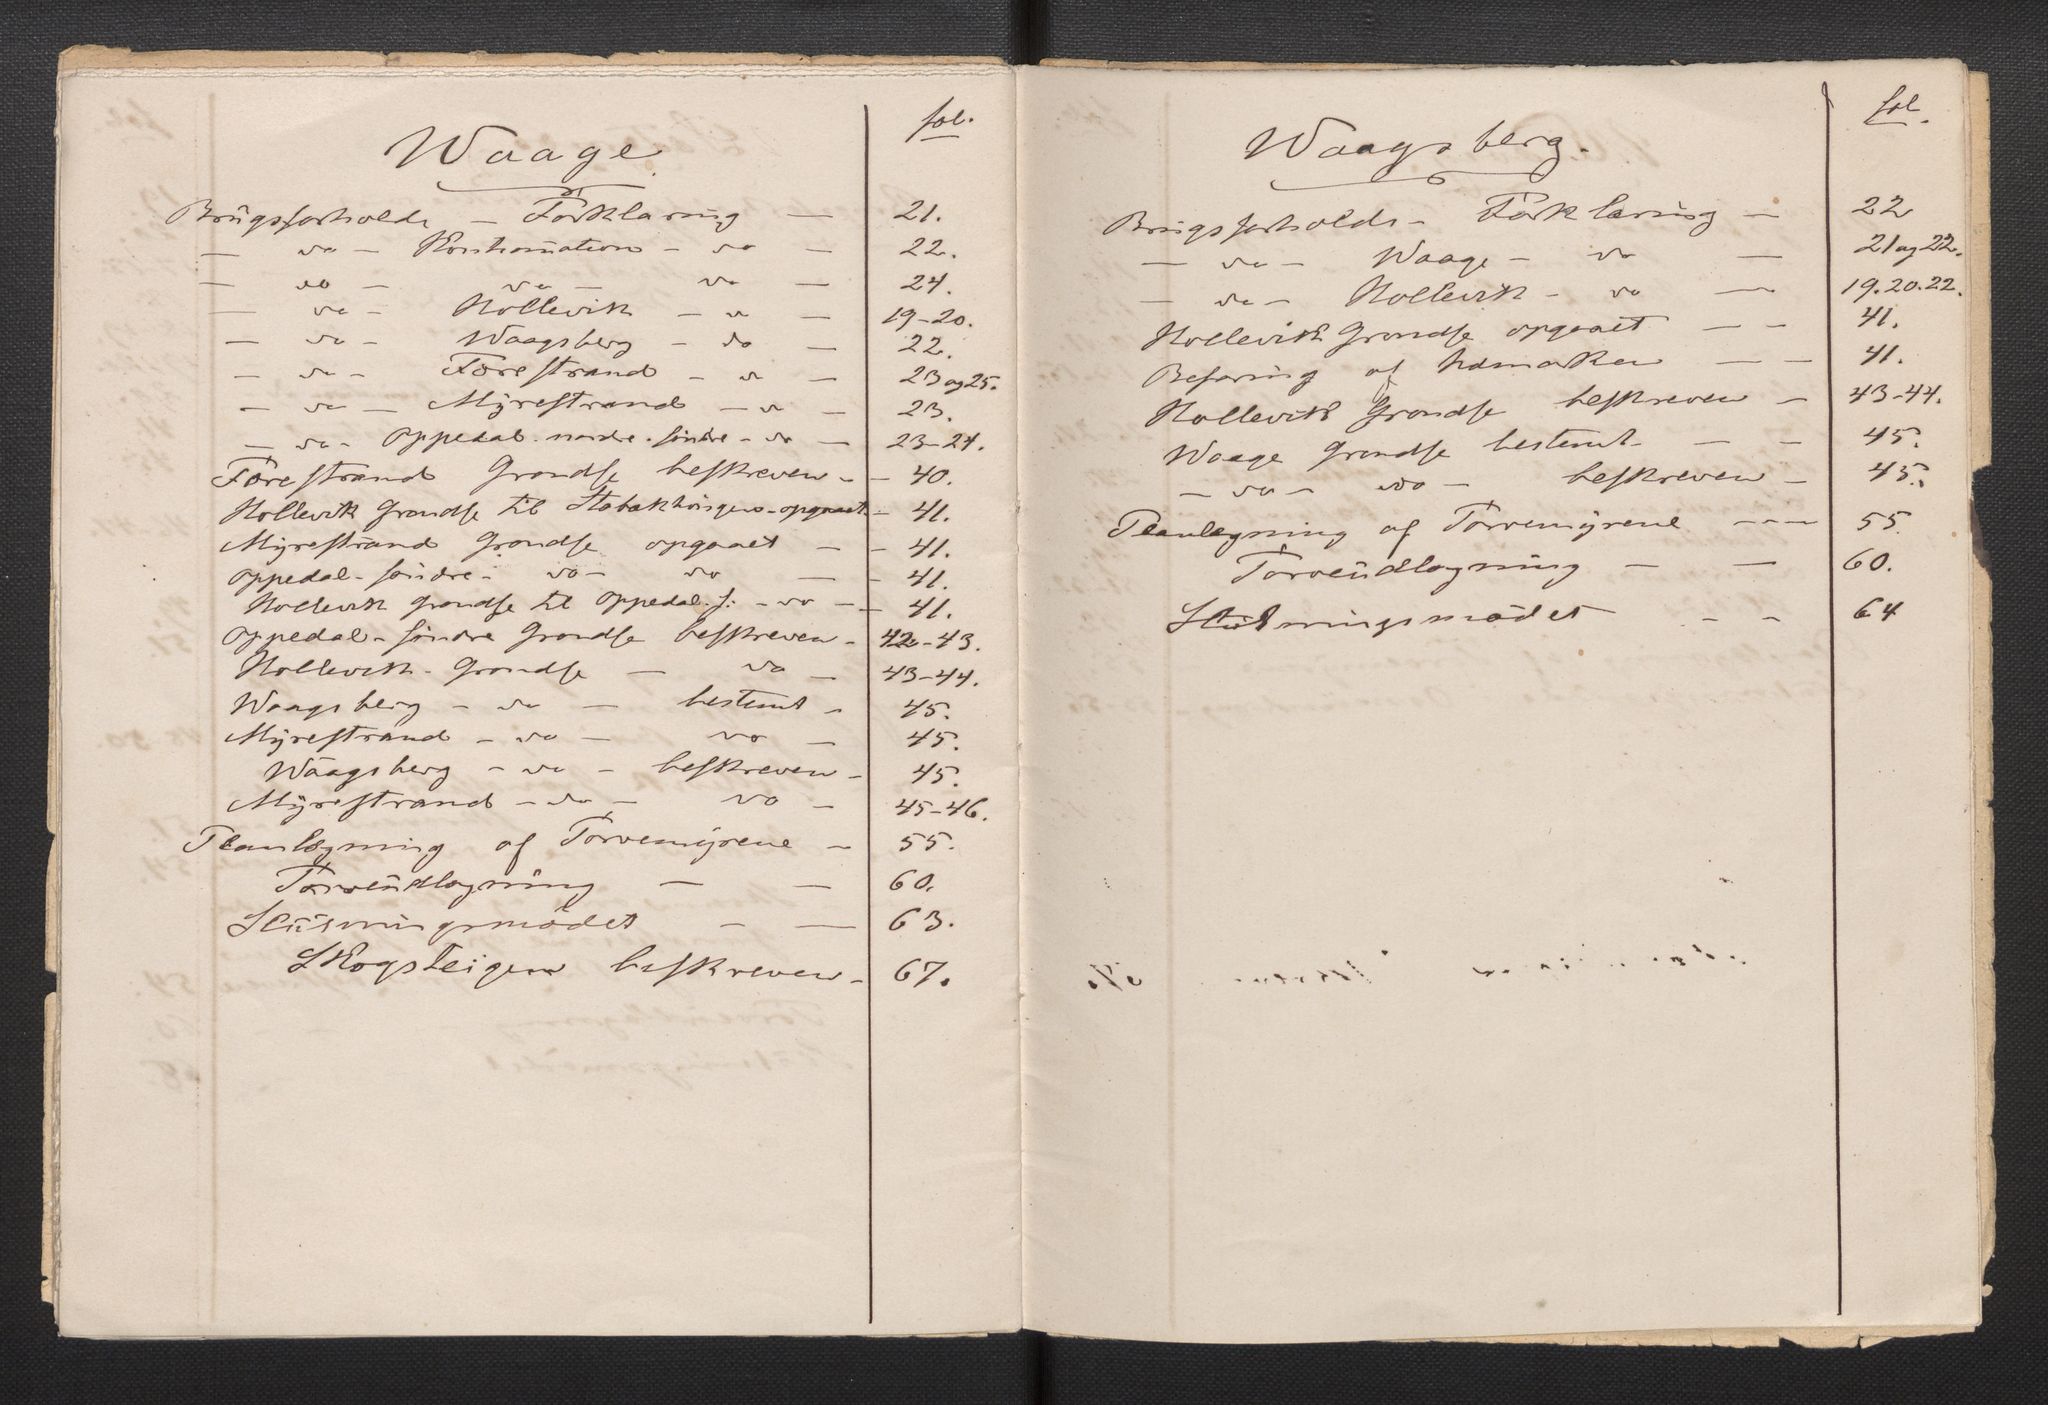 fol.
Waage
Brugsforholds – Forklaring – 21.
– do – Konfrontation – do – 22.
– do – do – do – 24.
– do – Hollevik – do – 19–20.
– do – Waagsberg – do – 22.
– do – Førestrand – do – 23 og 25.
– do – Myrestrand – do – 23.
– do – Oppedal nordre – søndre – do – 23–24.
Førestrand Grændse beskreven – 40.
Hollevik Grændse til opgaaet – 41.
Myrestrand Grændse opgaaet – – 41.
Oppedal – søndre – do – do – – 41.
Hollevik Grændse til Oppedal s: – do – – 41.
Oppedal – søndre Grændse beskreven – 42–43.
Hollevik – Grændse – do – 43–44.
Waagsberg – do – bestemt – 45.
Myrestrand – do – do – 45.
Waagsberg – do – beskreven – 45.
Myrestrand – do – do – 45–46.
Planlægning af Torvemyrene – 55.
Torveudlægning – – 60.
Slutningsmødet – – 63.
Skogsteigen beskreven – 67.
fol.
Waagsberg.
Brugsforholds – Forklaring – 22
– do – Waage – do – 21 og 22.
– do – Hollevik – do – 19. 20. 22.
Hollevik Grændse opgaaet – – 41.
Befaring af Udmarken – – 41.
Hollevik Grændse beskreven – 43–44.
Waage Grændse bestemt – – 45.
– do – do – beskreven – 45.
Planlægning af Torvemyrene – – – 55.
Torveudlægning – – 60.
Slutningsmødet – – 64